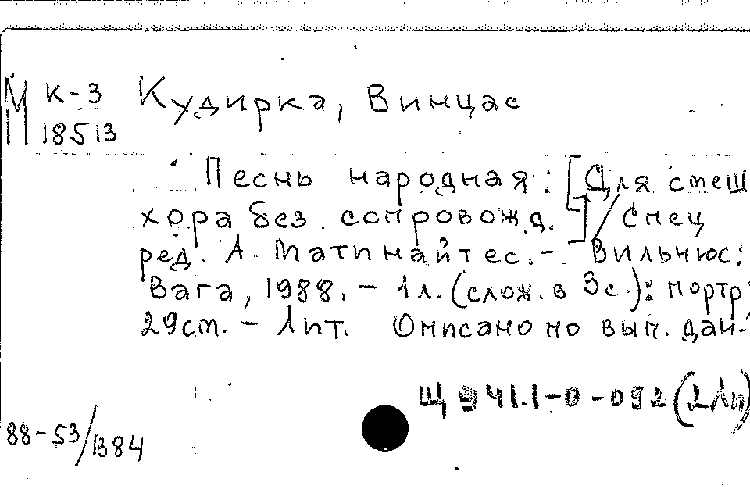 М К-3 Кудирка, Винцас
П 18513
Песнь народная: [Для смеш
хора без сопровожд.] / Спец
ред. А. Матинайтес. - Вильнюс:
Вага, 1988. - 1 л. (слож. в 3 с.): портр;
29 см. - Лит. Описано по вып. дан.
Щ 941.1-0-092 (2Ли)
88-53/1384